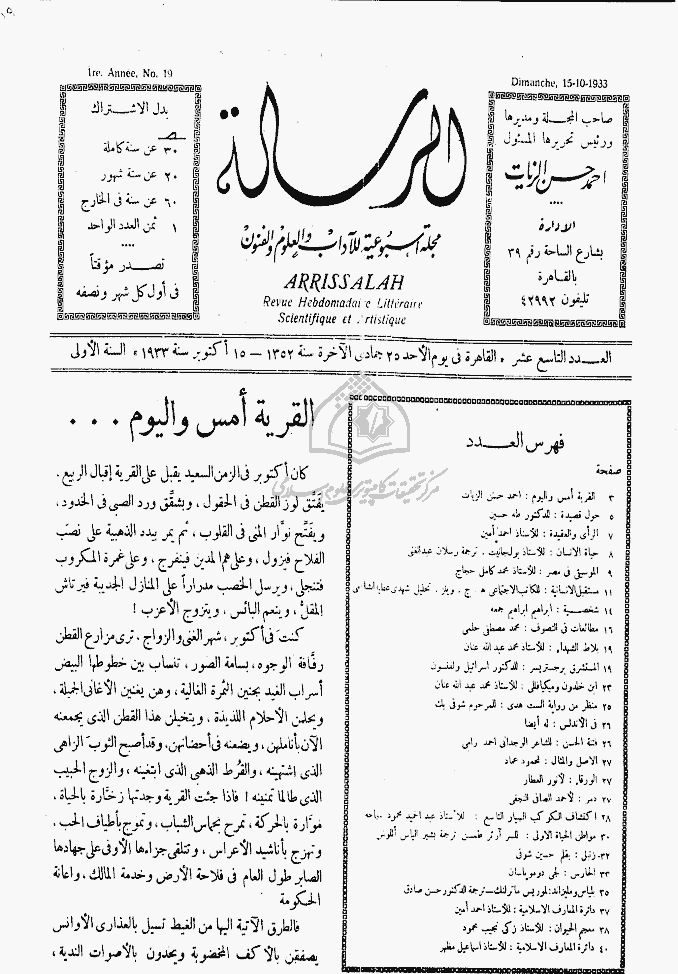 1re. Année, No. 19
بدل الاشتراك
ص
٣٠ عن سنة كاملة
٢٠ عن ستة شهور
٦٠ عن سنة فى الخارج
١ ثمن العدد الواحد
....
تصدر مؤقتاً
فى أول كل شهر ونصفه
الرسالة
مجلة أسبوعية للآداب والعلوم والفنون
ARRISSALAH
Revue Hebdomadaire Littéraire
Scientifique et Artistique
Dimanche, 15-10-1933
صاحب المجلة ومديرها
ورئيس تحريرها المسئول
احمد حسن الزيات
....
الادارة
بشارع الساحة رقم ٣٩
بالقاهرة
تليفون ٤٢٩٩٢
العدد التاسع عشر « القاهرة فى يوم الأحد ٢٥ جمادى الآخرة سنة ١٣٥٢ — ١٥ أكتوبر سنة ١٩٣٣ » السنة الأولى
فهرس العدد
صفحة
٣ القرية أمس واليوم : احمد حسن الزيات
٥ حول قصيدة : للدكتور طه حسين
٧ الرأى والعقيدة : للأستاذ احمد أمين
٨ حياة الانسان : للأستاذ بولجانيت . ترجمة رسلان عبدالغنى
٩ الموسيقى فى مصر : للأستاذ محمد كامل حجاج
١١ مستقبل الانسانية : للكاتب الاجتماعى ه . ج . ويلز . تحليل شهدى عطية الشافعى
١٤ شخصية : ابراهيم ابراهيم جمعه
١٦ مطالعات فى التصوف : محمد مصطفى حلمى
١٩ بلاط الشهداء : للأستاذ محمد عبد الله عنان
١٩ المستشرق برجستريسر : للدكتور اسرائيل ولفنسون
٢٣ ابن خلدون وميكيافللى : للأستاذ محمد عبد الله عنان
٢٥ منظر من رواية الست هدى : للمرحوم شوقى بك
٢٦ فى الأندلس : له أيضا
٢٦ فتنة الحسن : للشاعر الوجدانى احمد رامى
٢٧ الاصل والمثال : محمود عماد
٢٧ الورقاء : لأنور العطار
٢٧ دمر : لأحمد الصافى النجفى
٢٨ اكتشاف الكوكب السيار التاسع : للأستاذ عبد الحميد محمود سماحه
٣٠ مواطن الحياة الاولى : للسر آرثر طمسن ترجمة بشير الياس أللوس
٣٢ زنبلى : بقلم حسين شوقى
٣٣ الحارس : لجى دوموباسان
٣٥ بلياس ومليزاند : لموريس ماترلنك — ترجمة الدكتور حسن صادق
٣٧ دائرة المعارف الاسلامية : للأستاذ احمد أمين
٣٨ معجم الحيوان : للأستاذ زكى نجيب محمود
٤٠ دائرة المعارف الاسلامية : للأستاذ اسماعيل مظهر
القرية أمس واليوم ...
كان أكتوبر فى الزمن السعيد يقبل على القرية إقبال الربيع .
يفتّق لوز القطن فى الحقول ، ويشقّق ورد الصبى فى الخدود ،
ويفتّح نوّار المنى فى القلوب ، ثم يمر بيده الذهبية على نصَب
الفلاح فيزول ، وعلى هم المدين فينفرج ، وعلى غمرة المكروب
فتنجلى ، ويرسل الخصب مدراراً على المنازل الجديبة فيرتاش
المقلّ ، وينعم البائس ، ويتزوج الأعزب !
كنت فى أكتوبر ، شهر الغنى والزواج . ترى مزارع القطن
رفّافة الوجوه ، بسامة الصور ، تنساب بين خطوطها البيض
أسراب الغيد يجنين الثمرة الغالية ، وهن يغنين الأغانى الجميلة ،
ويحلمن الأحلام اللذيذة ، ويتخيلن هذا القطن الذى يجمعنه
الآن بأناملهن ، ويضعنه فى أحضانهن ، وقد أصبح الثوبَ الزاهى
الذى اشتهينه ، والقُرط الذهبى الذى ابتغينه ، والزوج الحبيب
الذى طالما تمنينه ! فاذا جئت القرية وجدتها زخّارة بالحياة ،
موّارة بالحركة ، تمرح بحماس الشباب ، وتموج بأطياف الحب ،
وتهزج بأناشيد الأعراس ، وتتلقى جزاءها الأوفى على جهادها
الصابر طول العام فى فلاحة الأرض وخدمة المالك ، واعانة
الحكومة
فالطرق الآتية اليها من الغيط تسيل بالعذارى الأوانس
يصفقن بالأكف المخضوبة ويحدون بالأصوات الندية ،